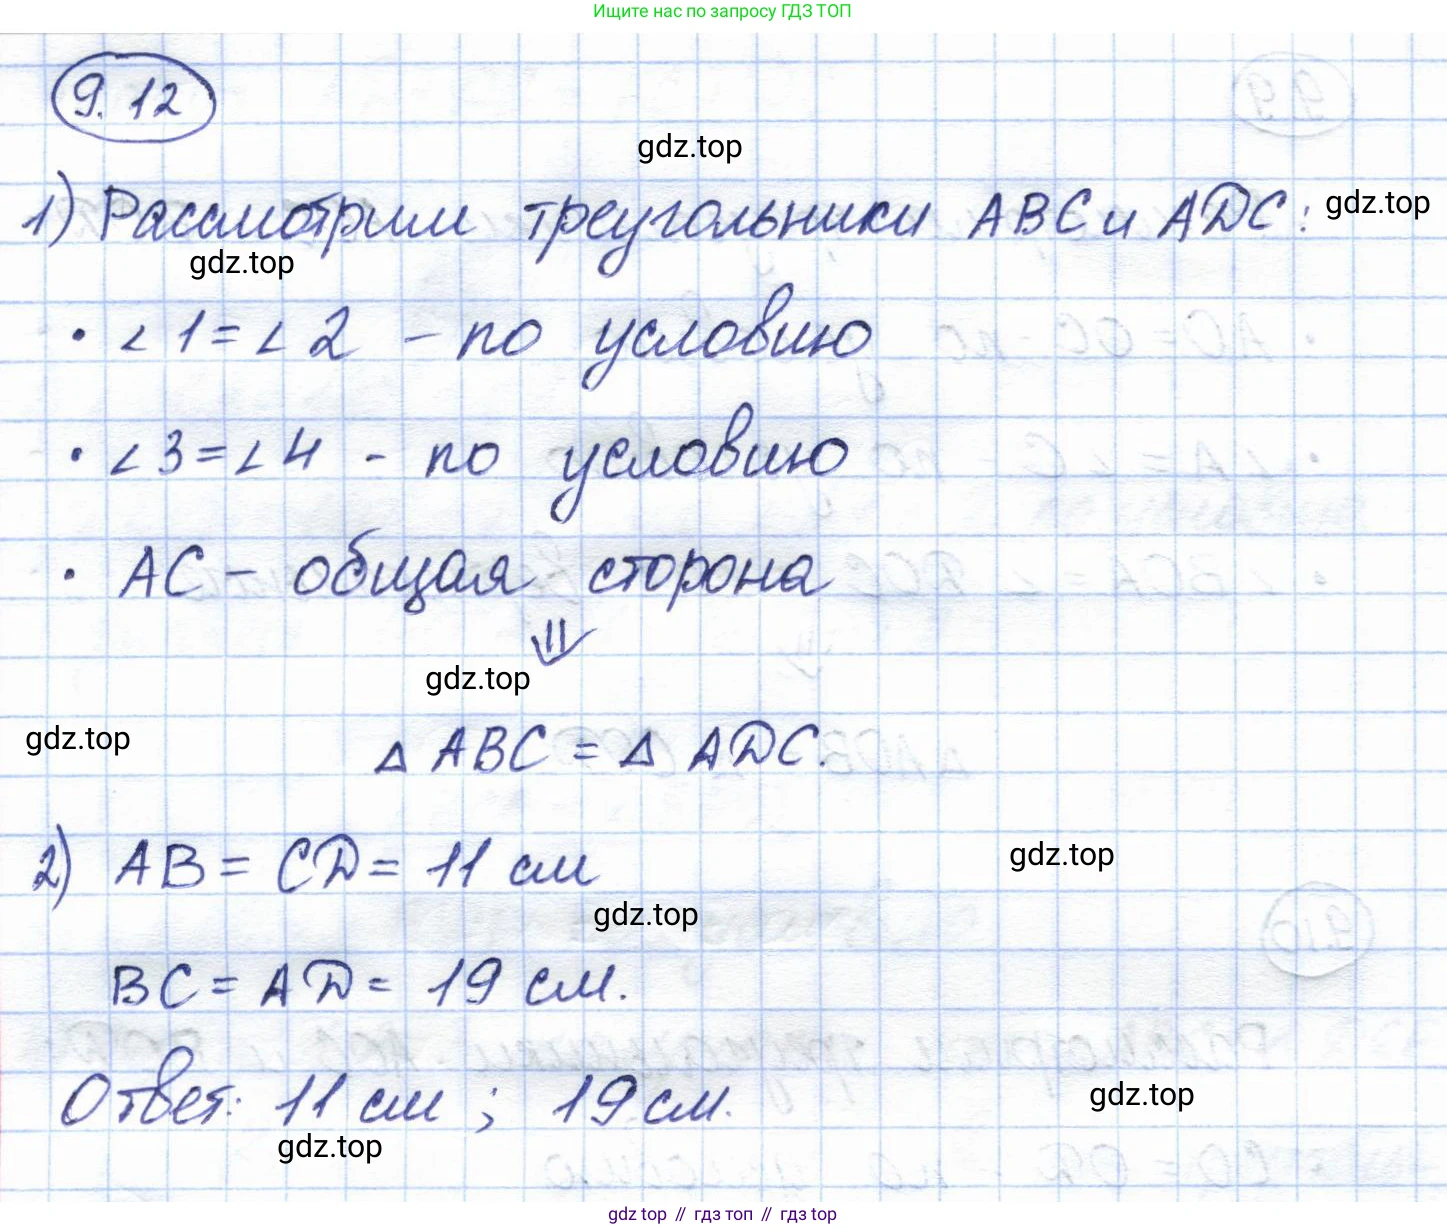 Ищите нас по запросу ГДЗ ТОП
9.12
gdz.top
1) Рассмотрим треугольники ABC и ADC:
gdz.top
gdz.top
• ∠1 = ∠2 – по условию
• ∠3 = ∠4 - по условию
• AC – общая сторона
⇓
gdz.top
gdz.top
△ ABC = △ ADC.
2) AB = CD = 11 см
gdz.top
gdz.top
BC = AD = 19 см.
Ответ: 11 см ; 19 см.
gdz.top
gdz.top
gdz top // гдз топ // гдз top